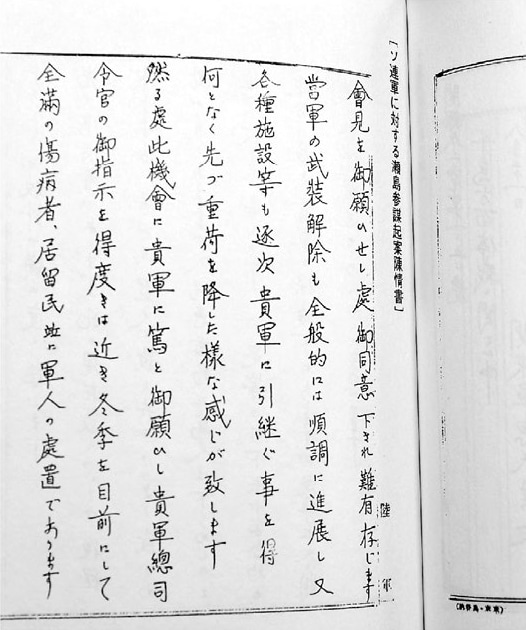 「ソ連軍に対する瀬島参謀起案陳情書」
陸軍
會見を御願ひせし處御同意下され難有存じます
當軍の武装解除も全般的には順調に進展し又
各種施設等も逐次貴軍に引継ぐ事を得
何となく先づ重荷を降した様な感じが致します
然る處此機會に貴軍に篤と御願ひし貴軍總司
令官の御指示を得度きは近き冬季を目前にして
全満の傷病者、居留民並に軍人の處置であります